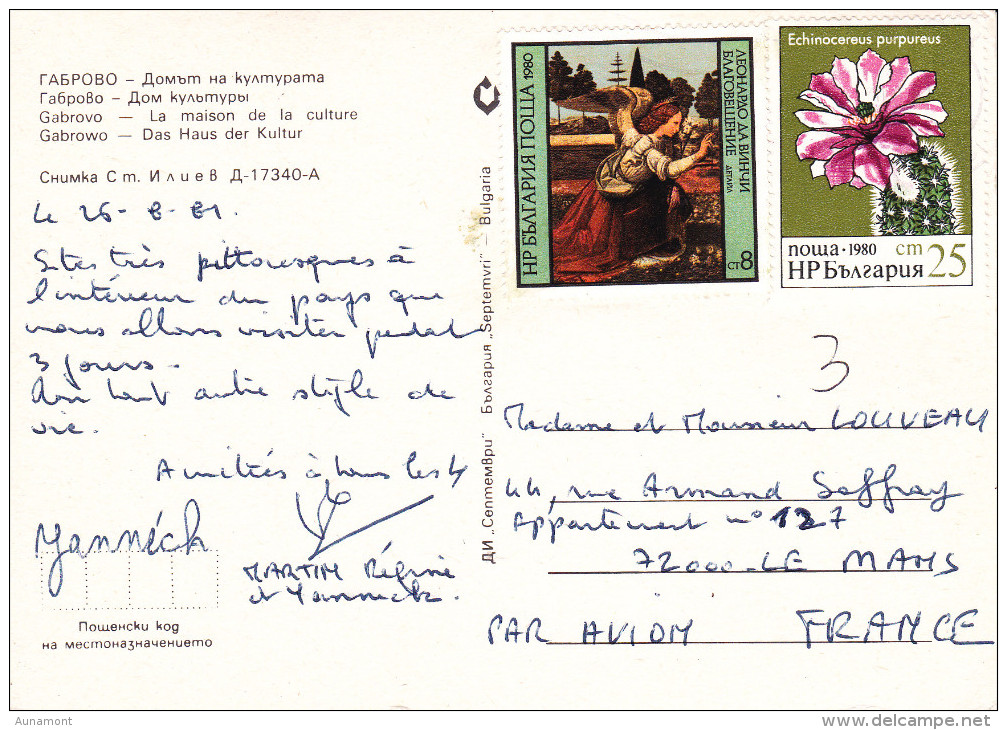 ГАБРОВО – Домът на културата
Габрово – Дом культуры
Gabrovo — La maison de la culture
Gabrowo — Das Haus der Kultur
Снимка Ст. Илиев Д-17340-А
Le 26-8-81.
Sites très pittoresques à
l'intérieur du pays que
nous allons visiter pendant
3 jours.
Un tout autre style de
vie.
Amitiés à tous les 4
Yannick
MARTIN Régine
et Yannick.
Пощенски код
на местоназначението
ДИ „Септември" България „Septemvri" — Bulgaria
НР БЪЛГАРИЯ ПОЩА 1980
ЛЕОНАРДО ДА ВИНЧИ
БЛАГОВЕЩЕНИЕ ДЕТАЙЛ
8 СТ
Echinocereus purpureus
поща · 1980 ст 25
НРБългария
3
Madame et Monsieur LOUVEAU
44, rue Armand Saffray
Appartement n° 127
72000 - LE MANS
PAR AVION FRANCE
Aunamont
www.delcampe.net